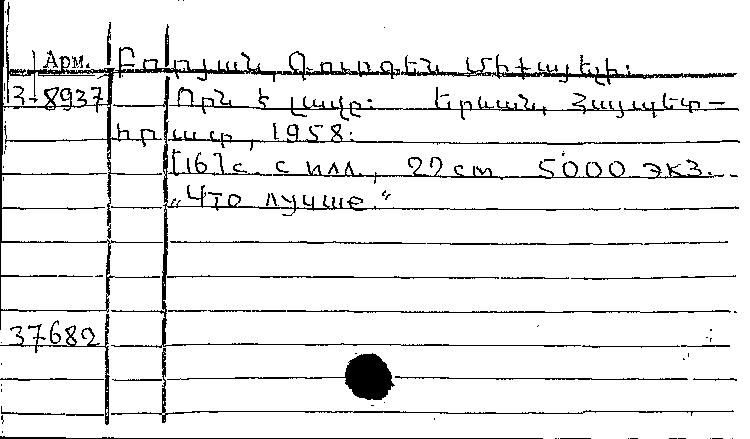 Арм. Բորյան, Գուրգեն Միքայելի:
3-8937 Որն է լավը: Երևան, Հայպետ-
հրատ, 1958:
[16] с. с илл., 22 см 5000 экз.
„Что лучше."
37682